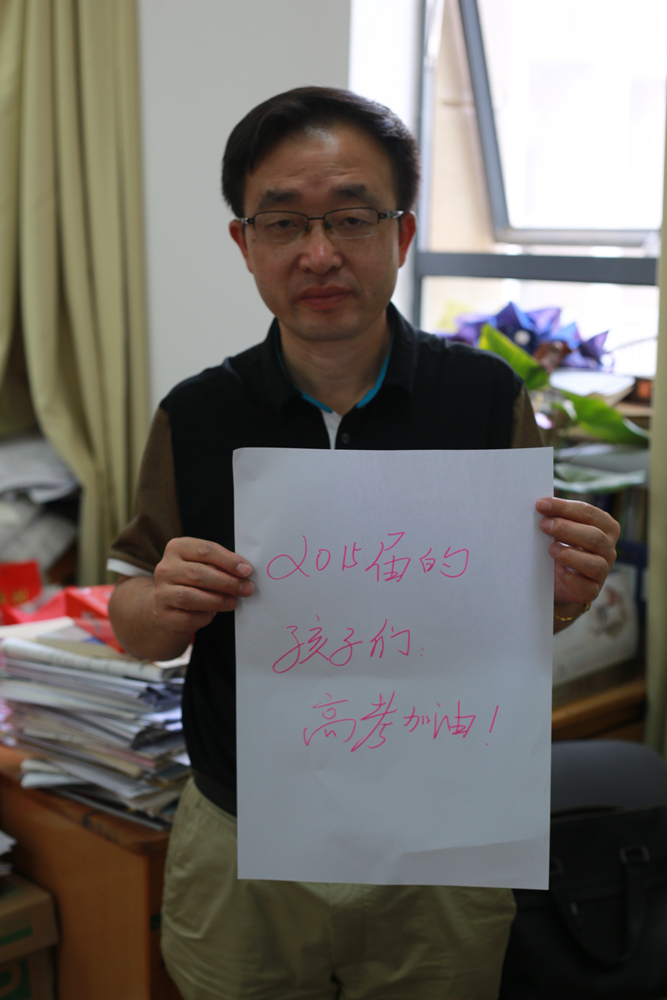 2015届的
孩子们:
高考加油!